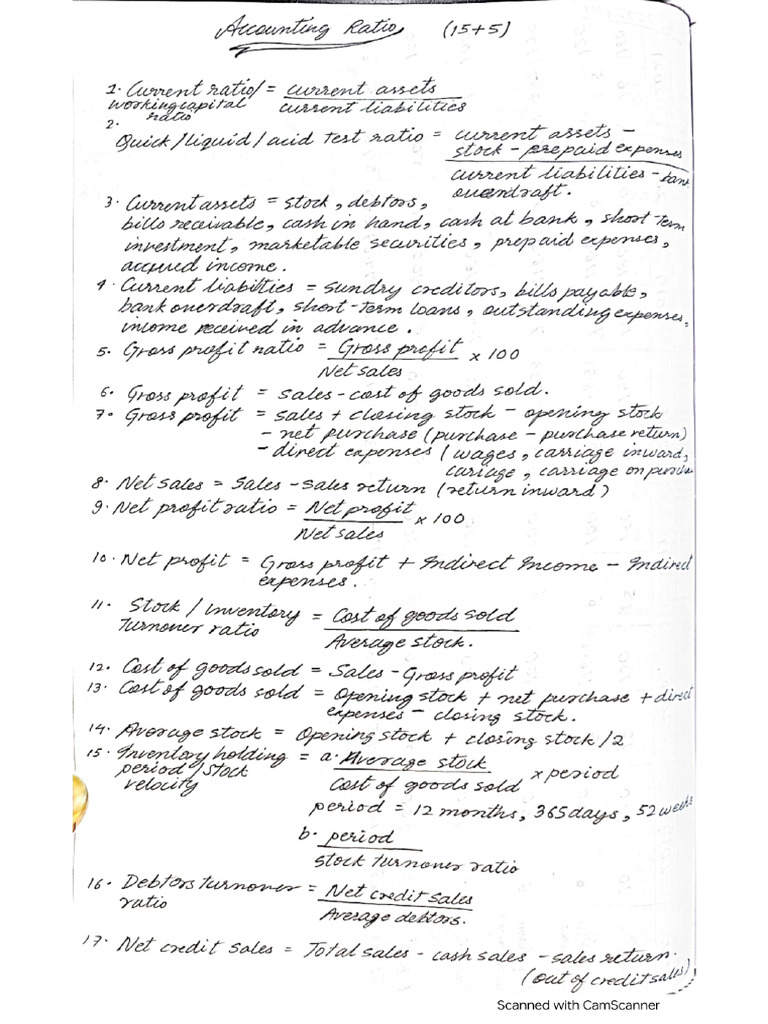 Accounting Ratio (15+5)
1. Current ratio/ = current assets
working capital current liabilities
ratio
2.
Quick/liquid/acid Test ratio = current assets -
stock - prepaid expenses
current liabilities - bank
overdraft.
3. Current assets = stock, debtors,
bills receivable, cash in hand, cash at bank, short term
investment, marketable securities, prepaid expenses,
accrued income.
4. Current liabilities = sundry creditors, bills payable,
bank overdraft, short-term loans, outstanding expenses,
income received in advance.
5. Gross profit ratio = Gross profit x 100
Net sales
6. Gross profit = sales - cost of goods sold.
7. Gross profit = sales + closing stock - opening stock
- net purchase (purchase - purchase return)
- direct expenses (wages, carriage inward,
cariage, carriage on purchase
8. Net sales = Sales - Sales return (return inward)
9. Net profit ratio = Net profit x 100
Net sales
10. Net profit = Gross profit + Indirect Income - Indirect
expenses.
11. Stock / Inventory = Cost of goods sold
Turnover ratio Average stock.
12. Cost of goods sold = Sales - Gross profit
13. Cost of goods sold = Opening stock + net purchase + direct
expenses - closing stock.
14. Average stock = Opening stock + closing stock /2
15. Inventory holding = a. Average stock x period
period / stock Cost of goods sold
velocity
period = 12 months, 365 days, 52 weeks
b. period
stock turnover ratio
16. Debtors turnover = Net credit sales
ratio Average debtors.
17. Net credit sales = Total sales - cash sales - sales return.
(out of credit sales)
Scanned with CamScanner